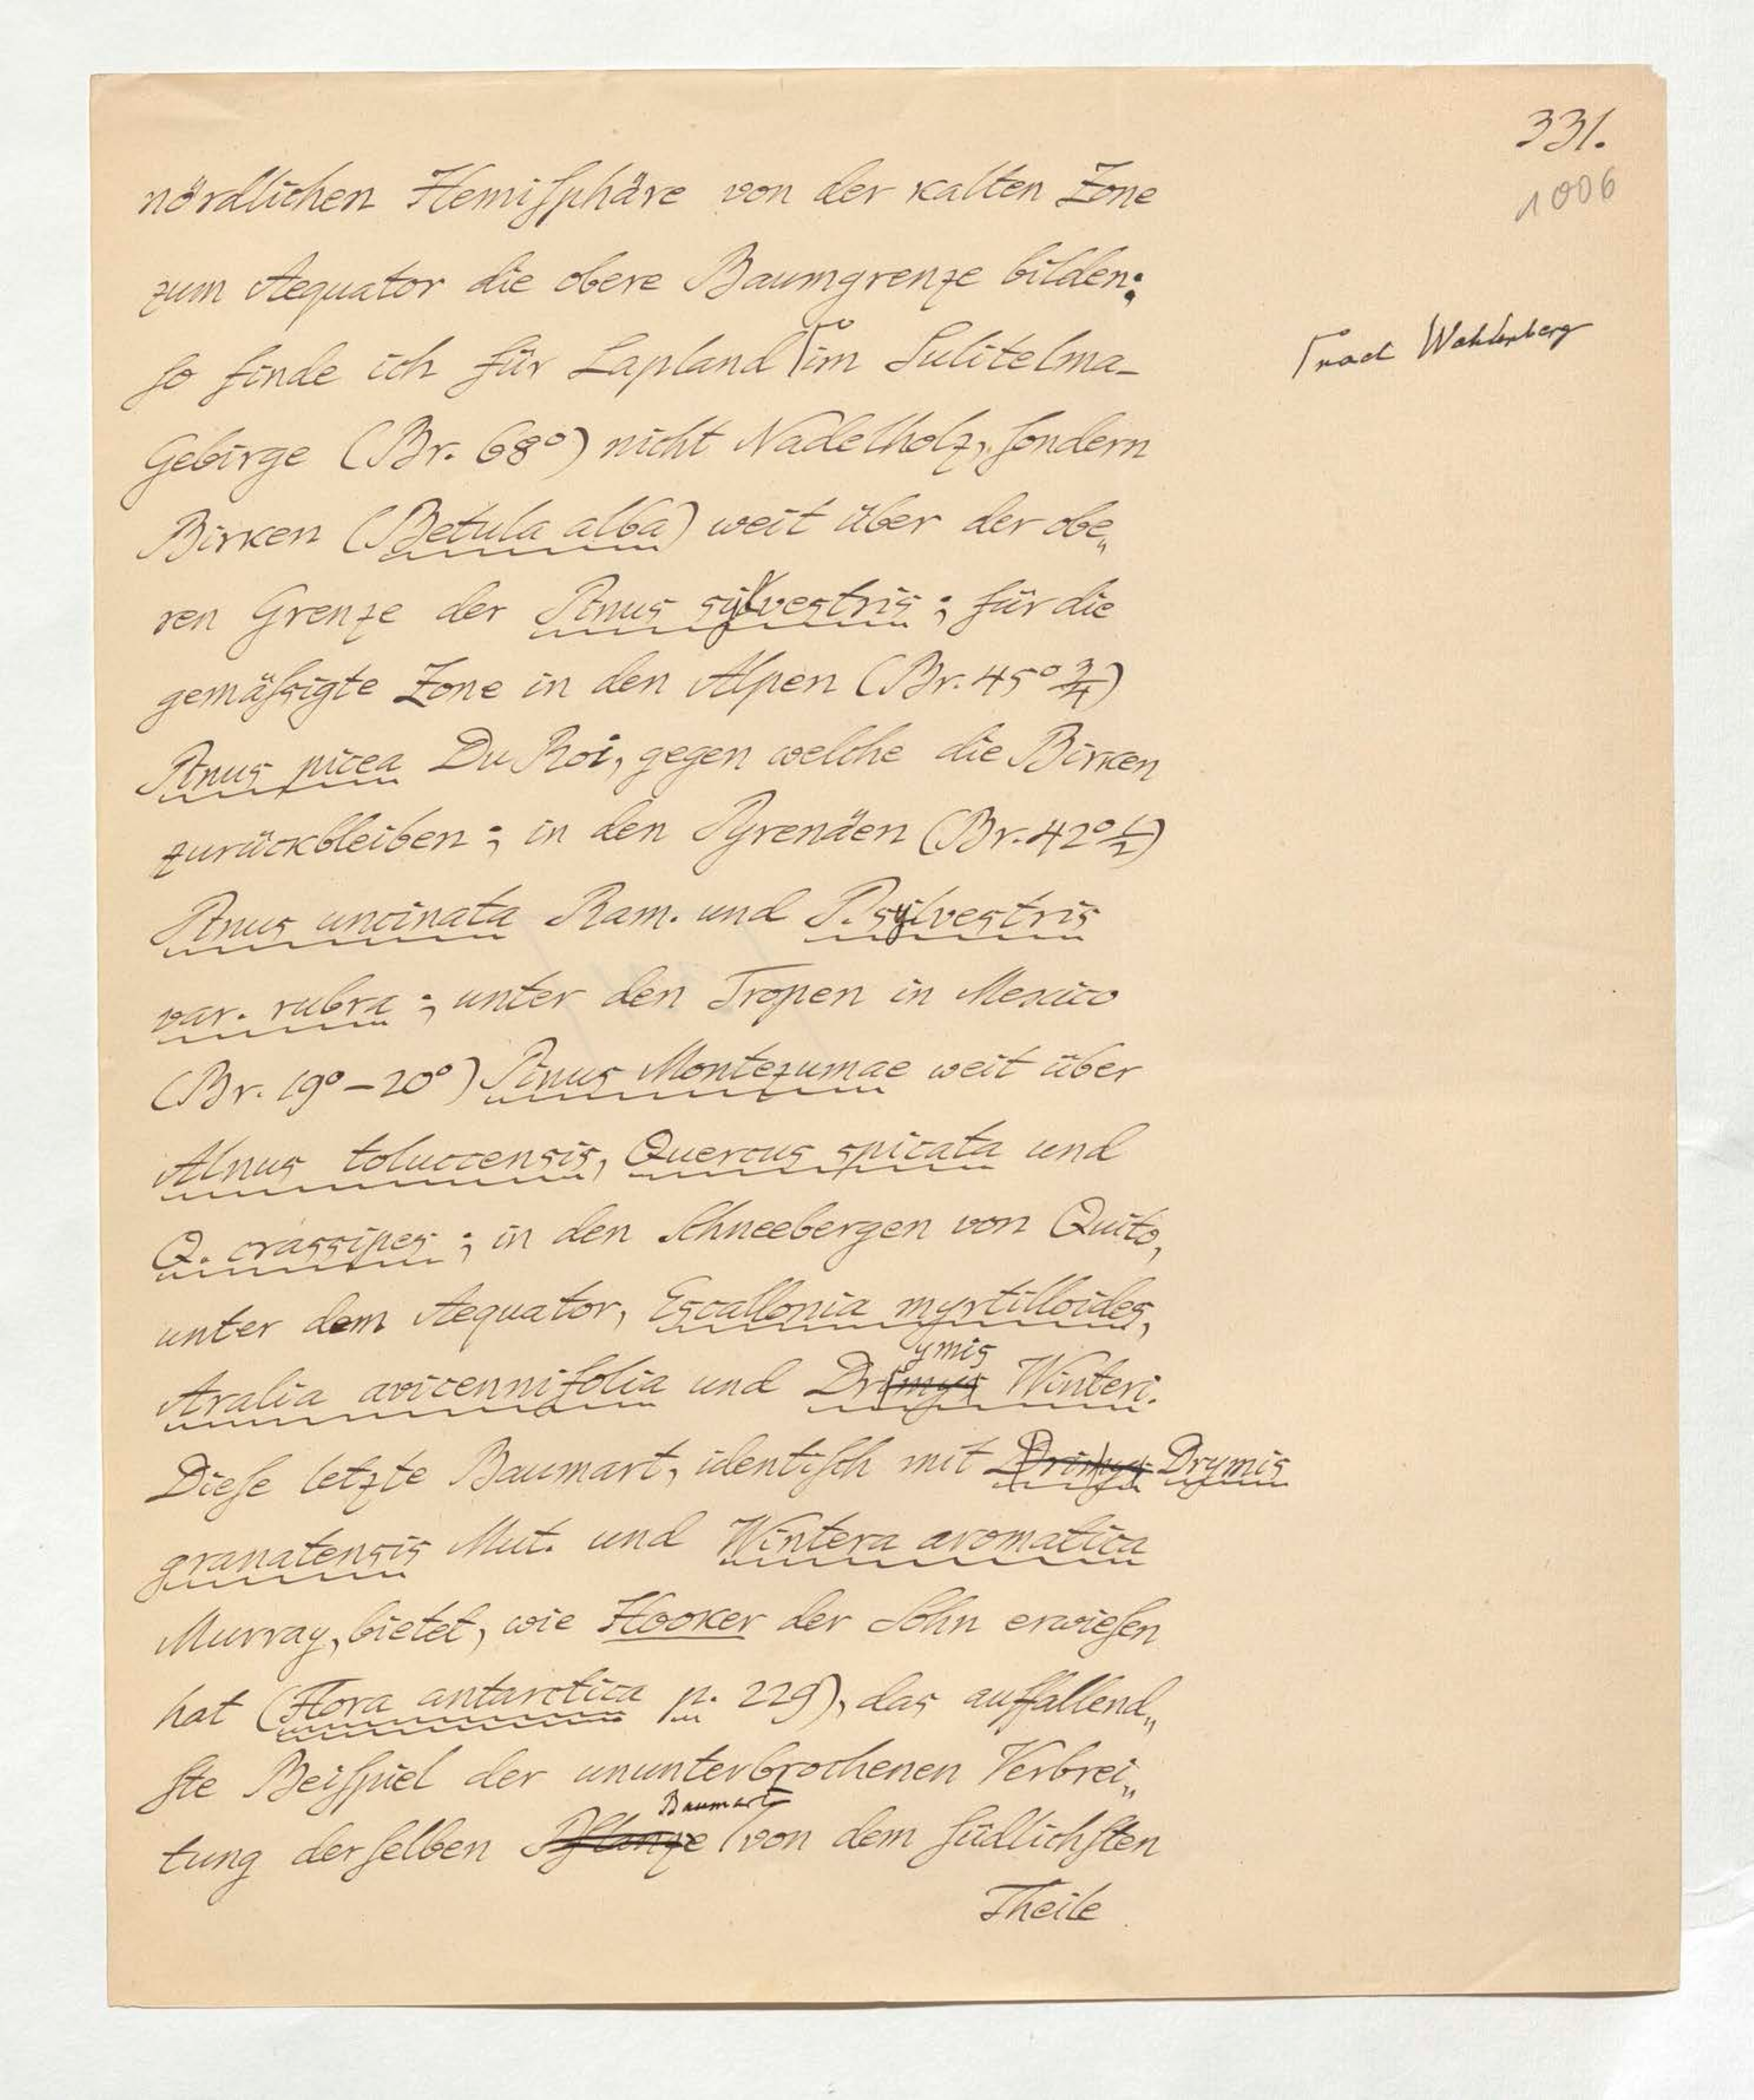 331.
1006
nördlichen Hemiſphäre von der kalten Zone
zum Aequator die obere Baumgrenze bilden;
ſo finde ich für Lapland ⌈im Sulitelma-
⌈nach Wahlenberg
Gebirge (Br. 68°) nicht Nadelholz, ſondern
Birken (Betula alba) weit über der obe„
ren Grenze der Pinus sylvestris; für die
gemäſsigte Zone in den Alpen (Br. 45° 3/4)
Pinus picea Du Roi, gegen welche die Birken
zurückbleiben; in den Pyrenäen (Br. 42° 1/2)
Pinus uncinata Ram. und P. sylvestris
var. rubra; unter den Tropen in Mexico
(Br. 19°–20°) Pinus Montezumae weit über
Alnus toluccensis, Quercus spicata und
Q. crassipes; in den Schneebergen von Quito,
unter dem Aequator, Escallonia myrtilloides,
ymis
Aralia avicennifolia und Drimys Winteri.
Dieſe letzte Baumart, identiſch mit Drimys Drymis
granatensis Mut. und Wintera aromatica
Murray, bietet, wie Hooker der Sohn erwieſen
hat (Flora antarctica p. 229), das auffallend„
ſte Beiſpiel der ununterbrochenen Verbrei„
Baumart
tung derſelben Pflanze ⌈von dem ſüdlichſten
Theile